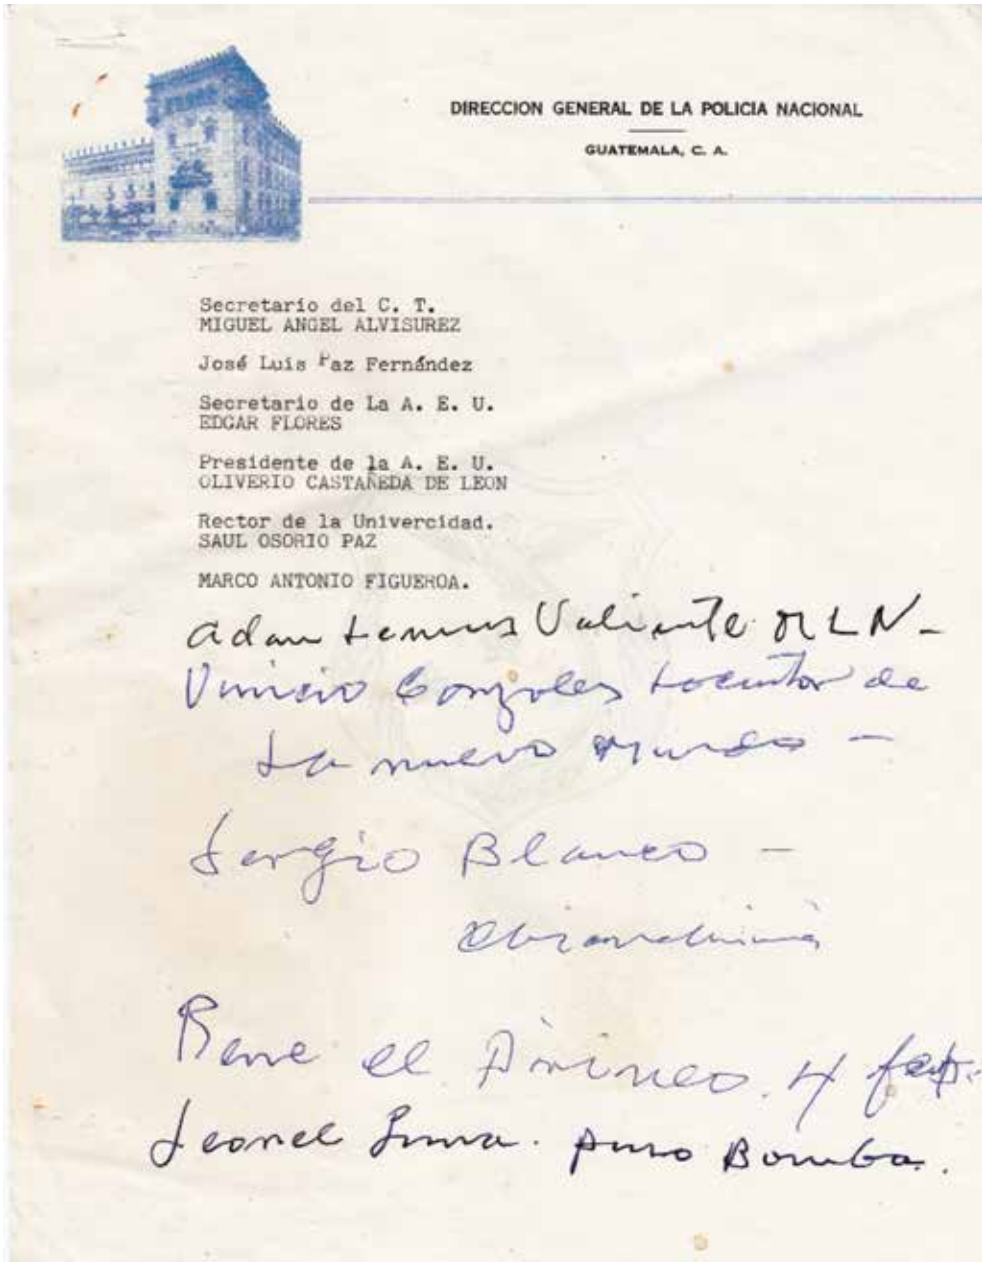 DIRECCION GENERAL DE LA POLICIA NACIONAL
GUATEMALA, C. A.
Secretario del C. T.
MIGUEL ANGEL ALVISUREZ
José Luis Paz Fernández
Secretario de La A. E. U.
EDGAR FLORES
Presidente de la A. E. U.
OLIVERIO CASTAÑEDA DE LEON
Rector de la Univercidad.
SAUL OSORIO PAZ
MARCO ANTONIO FIGUEROA.
Adan Lemus Valiente MLN-
Vinisio Gonzales Locutor de
La nuevo Mundo -
Sergio Blanco -
Rene el 4
Leonel puro Bomba.